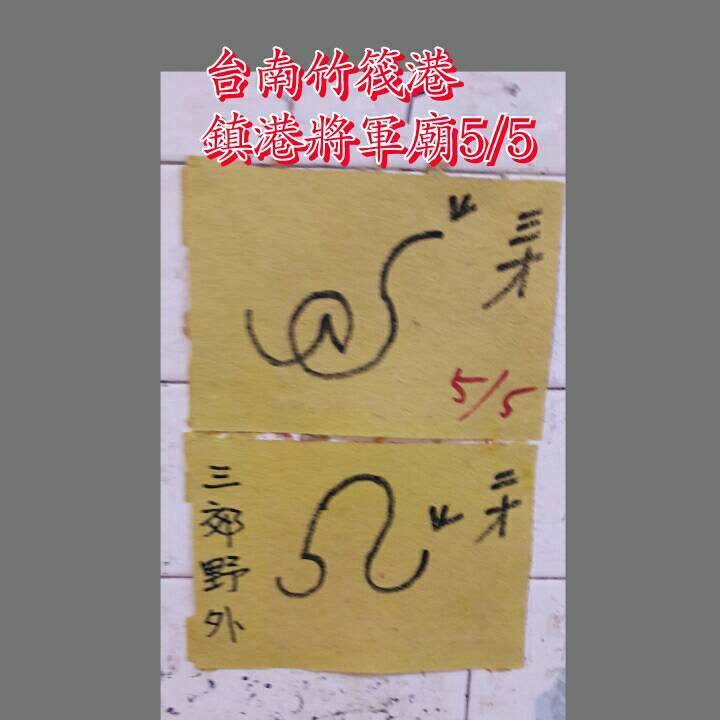 台南竹筏港
鎮港將軍廟5/5
5/5
三郊野外